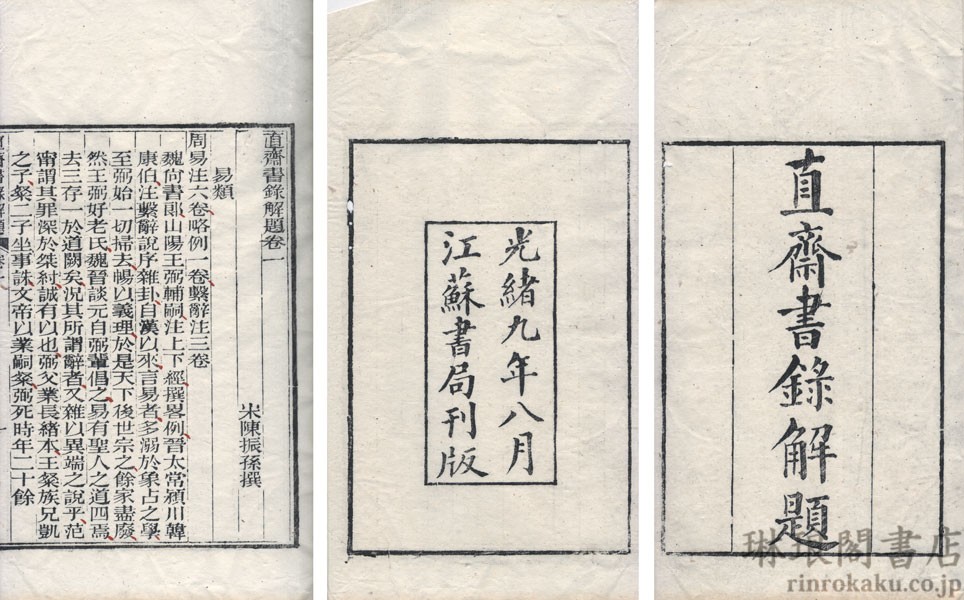 直齋書錄解題
光緒九年八月
江蘇書局刊版
直齋書錄解題卷一
宋陳振孫撰
易類
周易注六卷略例一卷繫辭注三卷
魏尚書郎山陽王弼輔嗣注上下經撰畧例晉太常潁川韓
康伯注繫辭說序雜卦自漢以來言易者多溺於象占之學
至弼始一切掃去暢以義理於是天下後世宗之餘家盡廢
然王弼好老氏魏晉談元自弼輩倡之易有聖人之道四焉
去三存一於道闕矣況其所謂辭者又雜以異端之說乎范
甯謂其罪深於桀紂誠有以也弼父業長緒本王粲族兄凱
之子粲二子坐事誅文帝以業嗣粲弼死時年二十餘
琳琅閣書店
rinrokaku.co.jp